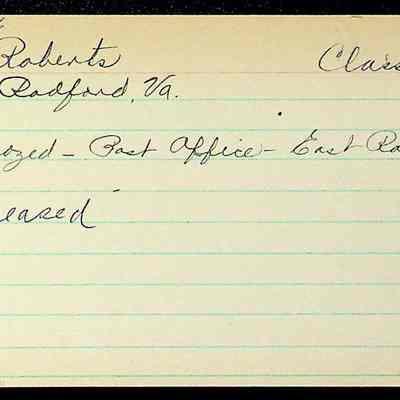 Roberts Class
Radford, Va.
oyed - Post Office - East Ra
eased